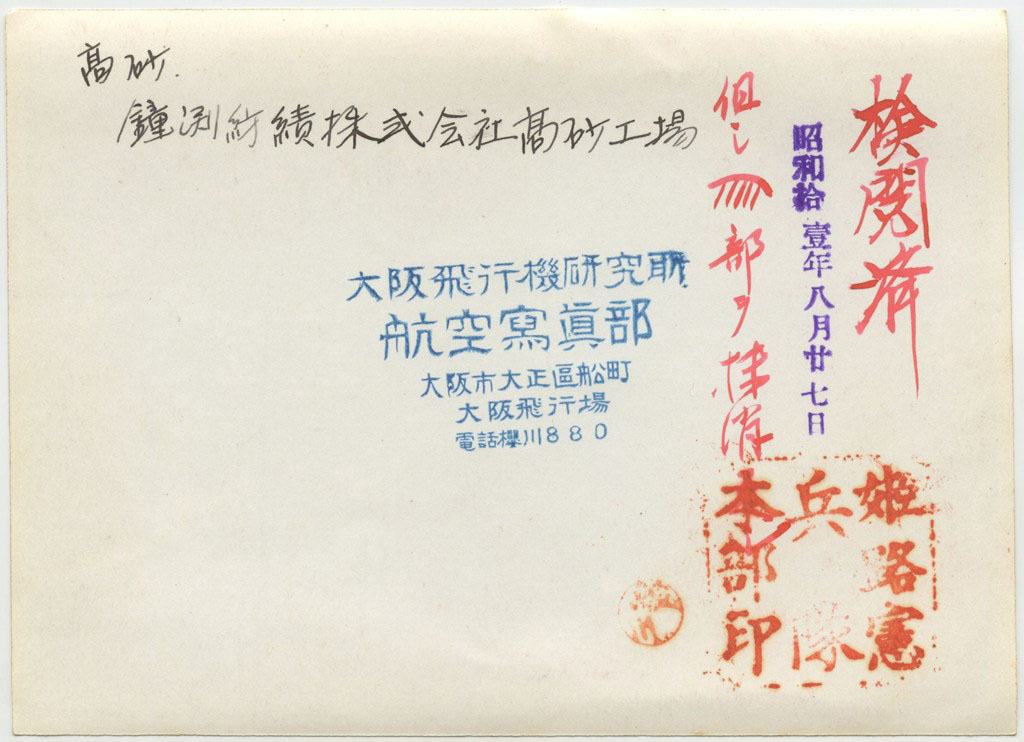 髙砂.
鐘渕紡績株式会社髙砂工場
検閲済
昭和拾壹年八月廿七日
但し 部ヲ抹消
大阪飛行機研究所
航空寫眞部
大阪市大正區船町
大阪飛行場
電話櫻川880
姫路憲
兵隊
本部印